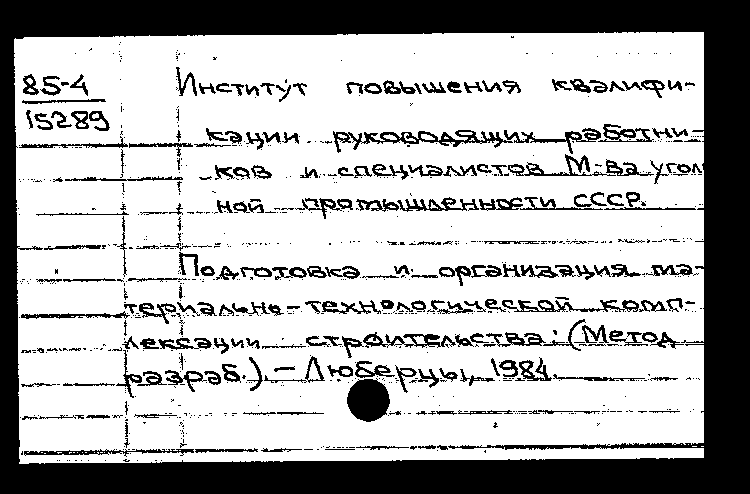 85-4
15289
Институт повышения квалифи-
кации руководящих работни-
ков и специалистов М-ва угол
ной промышленности СССР.
Подготовка и организация ма-
териально-технологической комп-
лексации строительства: (Метод
разраб.). - Люберцы, 1984.